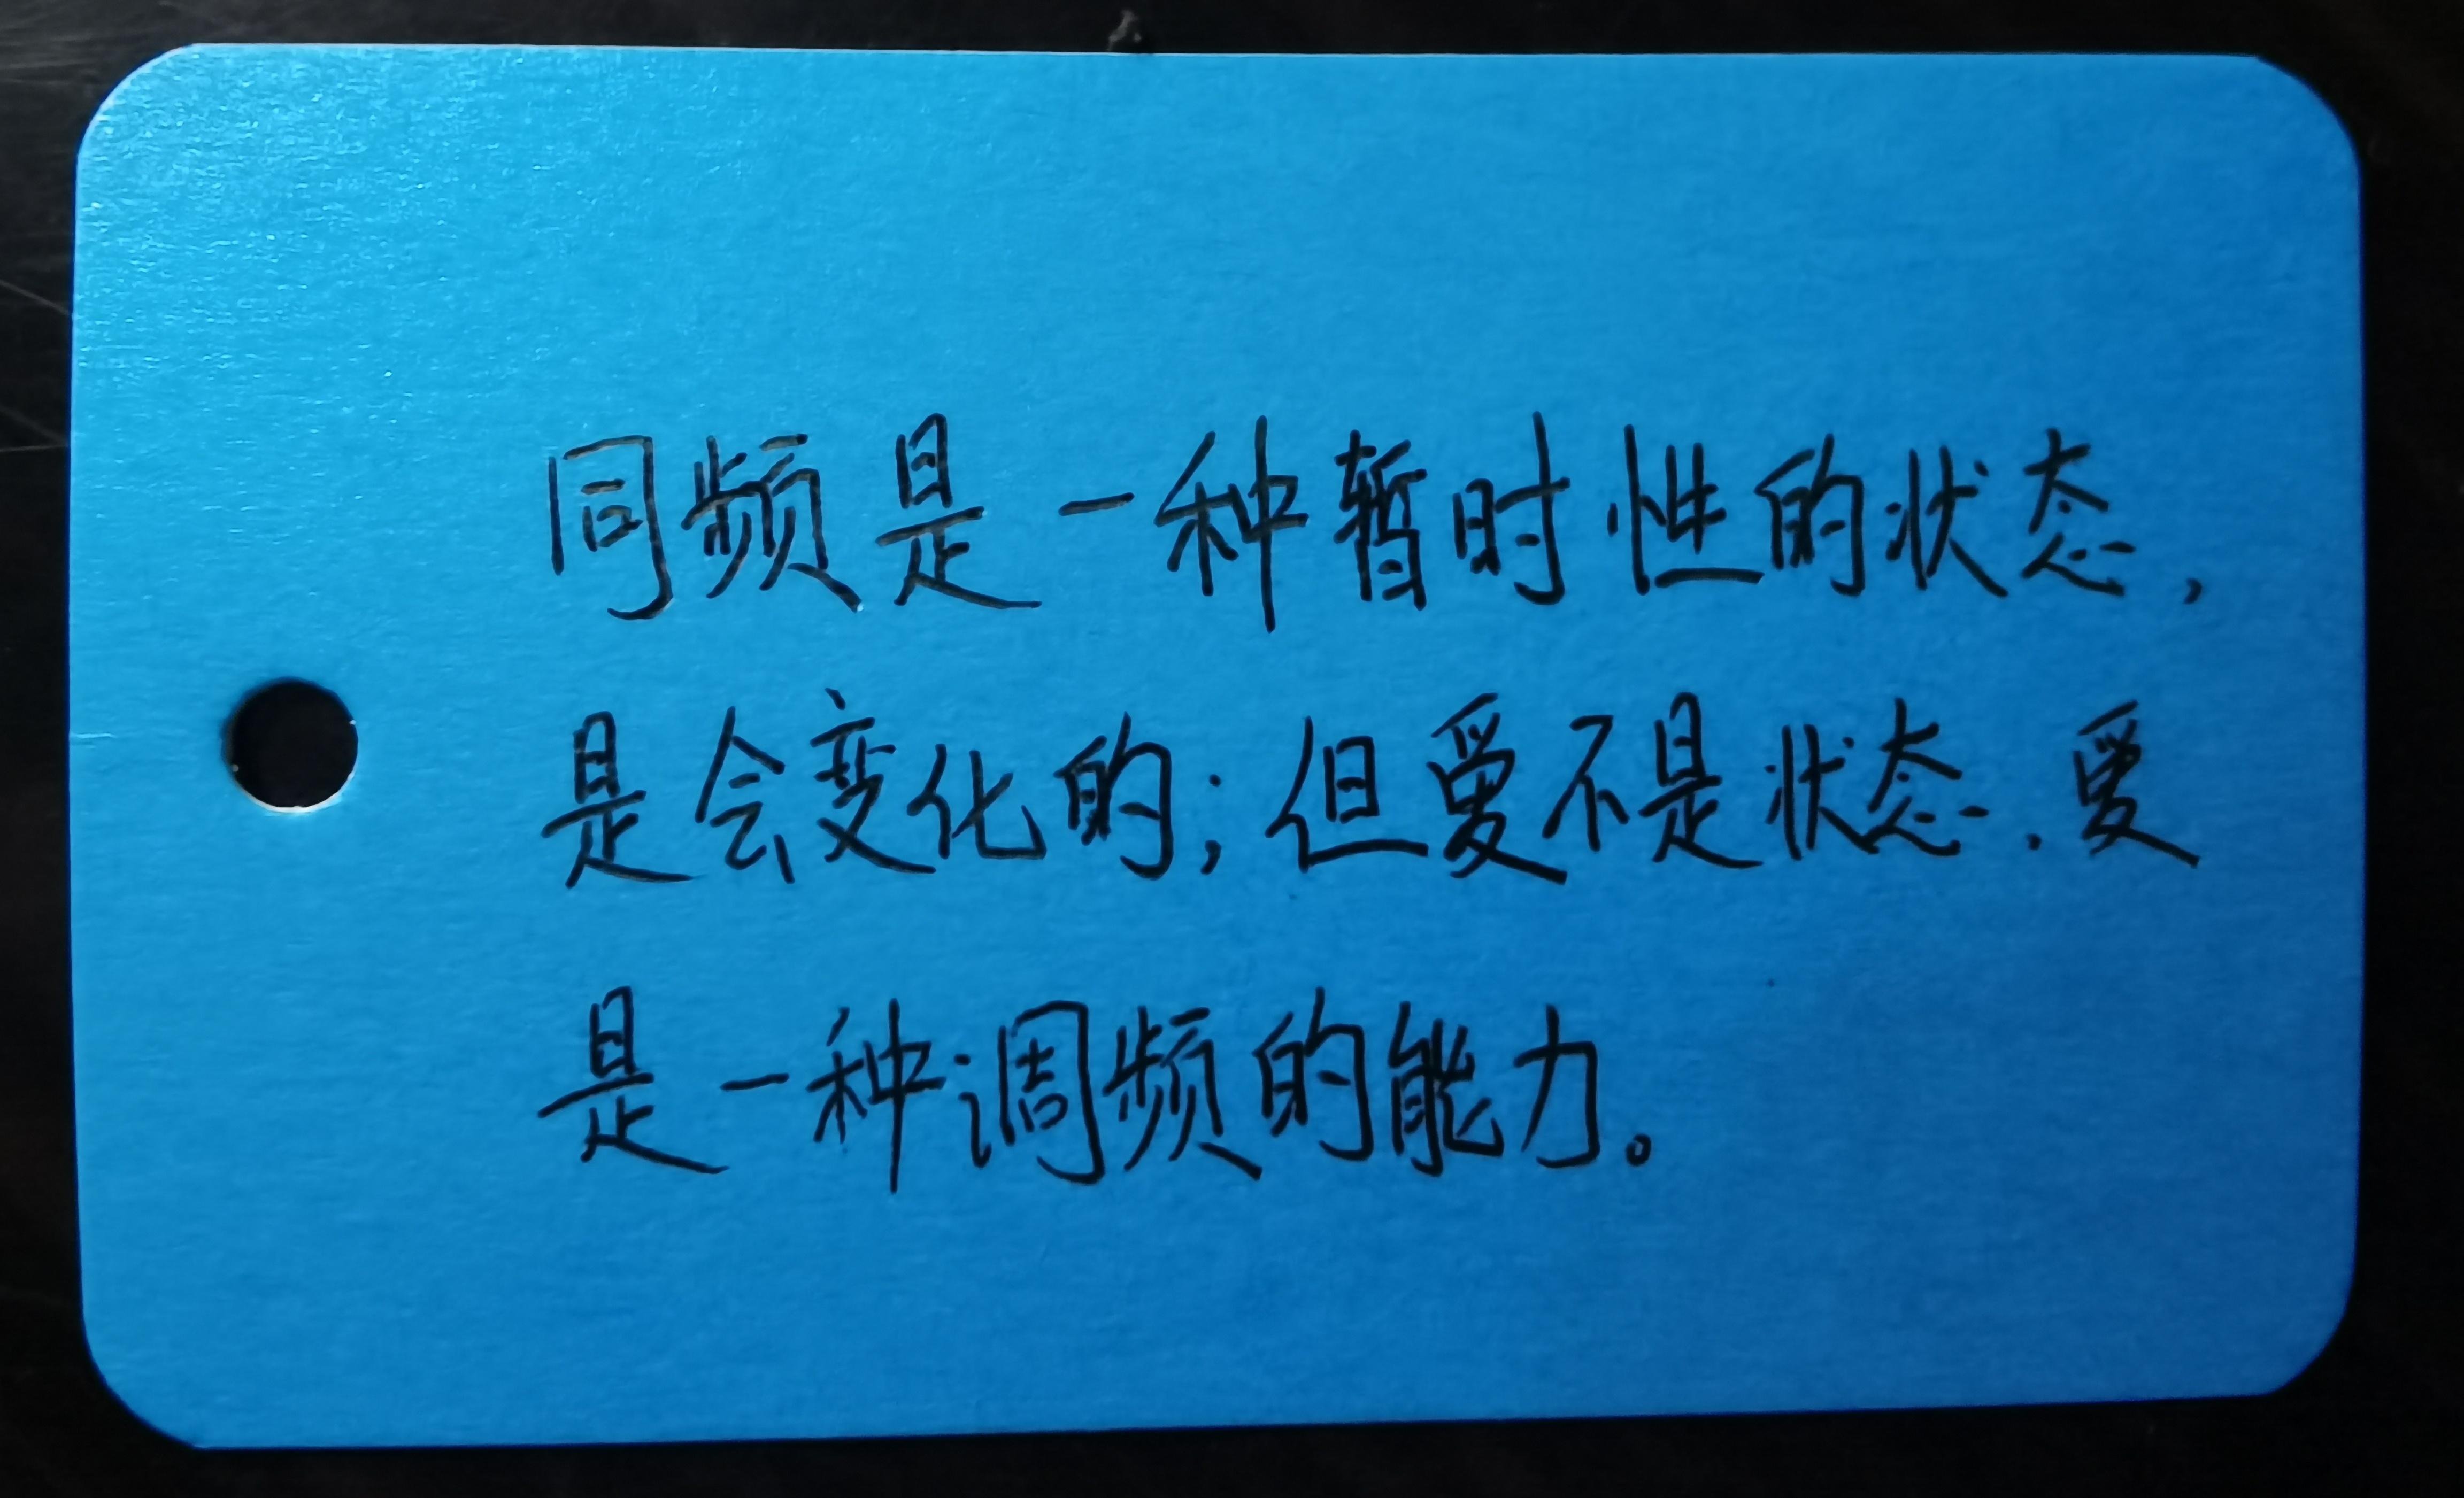 同频是一种暂时性的状态，
是会变化的；但爱不是状态，爱
是一种调频的能力。